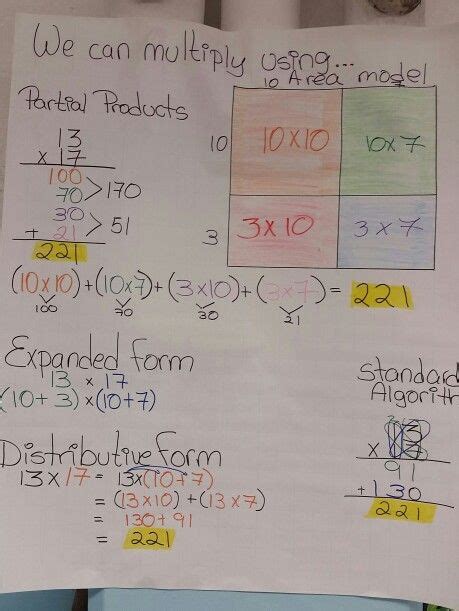 We can multiply using...
Partial Products
13
x 17
100
70 > 170
30
+ 21 > 51
221
10 Area model
10 10x10 10x7
3 3x10 3x7
(10x10)+(10x7)+(3x10)+(3x7)= 221
100 70 30 21
Expanded form
13 x 17
(10+3)x(10+7)
Distributive form
13x17 = 13x(10+7)
= (13x10)+(13x7)
= 130+91
= 221
Standard
Algorith
x
91
+130
221